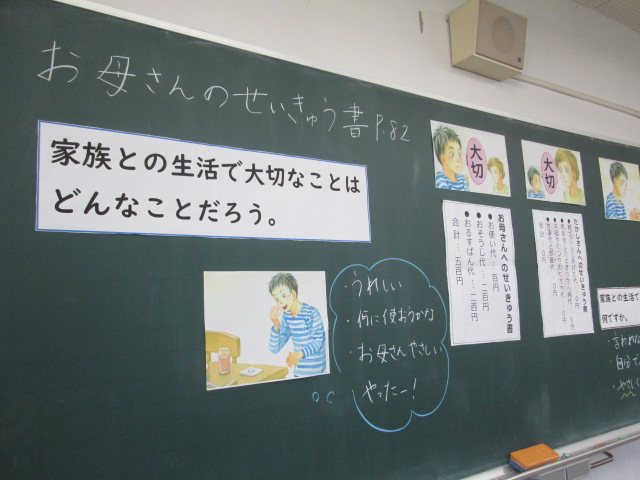 お母さんのせいきゅう書 P.82
家族との生活で大切なことは
どんなことだろう。
・うれしい
・何に使おうかな
・お母さんやさしい
・やったー！
大切
お母さんへのせいきゅう書
●お使い代…百円
●おそうじ代…二百円
●おるすばん代…二百円
合計…五百円
大切
たかしさんへのせいきゅう書
合計 0円
家族との生活で
何ですか。
・言われな
・自分で